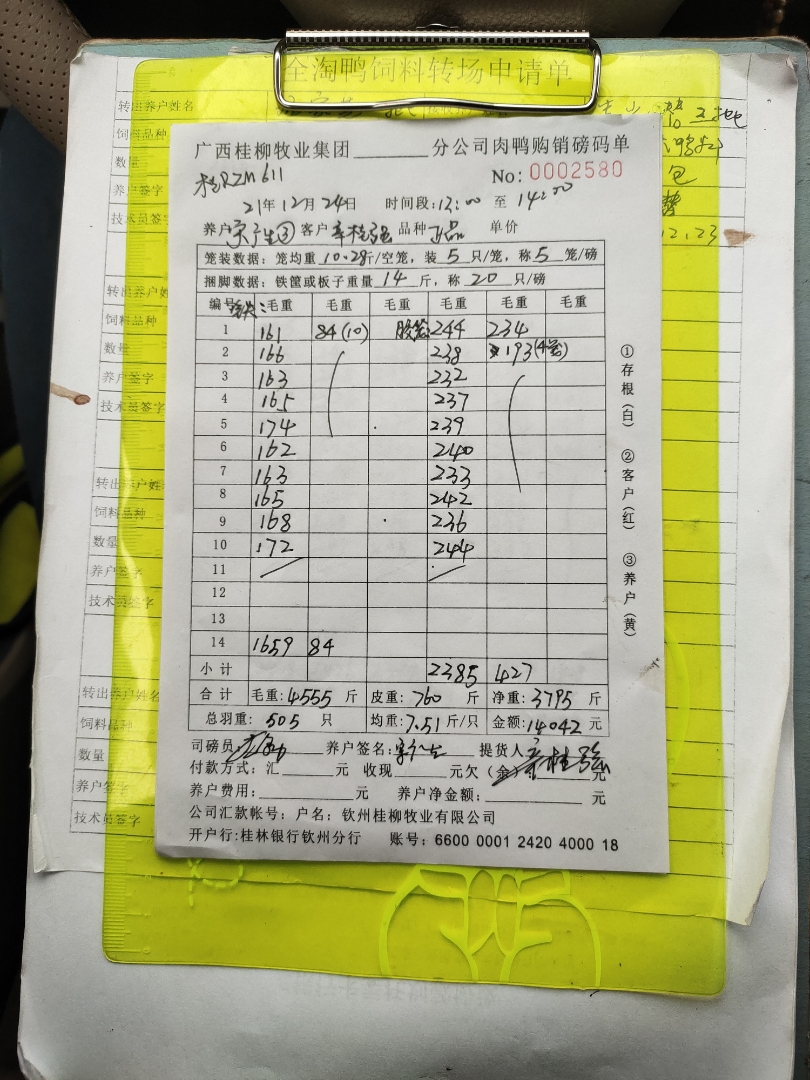 全淘鸭饲料转场申请单
转出养户姓名
饲料品种
数量
包
养户签字
技术员签字
12.23
广西桂柳牧业集团________分公司肉鸭购销磅码单
桂RZM611
No: 0002580
21年12月24日 时间段:13:00 至 14:00
养户 ③ 客户 辛桂强 品种 正品 单价
笼装数据: 笼均重 10.28斤/空笼, 装 5 只/笼, 称 5 笼/磅
捆脚数据: 铁筐或板子重量 14 斤, 称 20 只/磅
编号 毛重 毛重 毛重 毛重 毛重 毛重
1 161 84(10) 胶笼 244 234
2 166 238 193(4笼)
3 163 232
4 165 237
5 174 239
6 162 240
7 163 233
8 165 242
9 168 236
10 172 244
11
12
13
14 1659 84
小计 2385 427
合计 毛重:4555 斤 皮重:760 斤 净重:3795 斤
总羽重: 505 只 均重:7.51斤/只 金额:14042元
司磅员 养户签名: 提货人 辛桂强
付款方式: 汇______元 收现______元欠(余)______元
养户费用:__________元 养户净金额:__________元
公司汇款帐号: 户名: 钦州桂柳牧业有限公司
开户行:桂林银行钦州分行 账号: 6600 0001 2420 4000 18
①存根(白) ②客户(红) ③养户(黄)
转出养户姓
饲料品种
数量
养户签字
技术员签字
转出养户姓
饲料品种
数量
养户签字
技术员签字
转出养户姓名
饲料品种
数量
养户签字
技术员签字